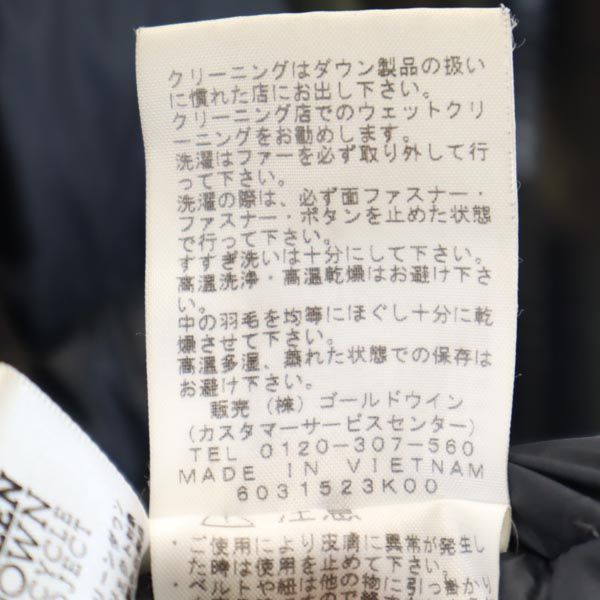 クリーニングはダウン製品の扱い
に慣れた店にお出し下さい。
クリーニング店でのウェットクリ
ーニングをお勧めします。
洗濯はファーを必ず取り外して行
って下さい。
洗濯の際は、必ず面ファスナー・
ファスナー・ボタンを止めた状態
で行って下さい。
すすぎ洗いは十分にして下さい。
高温洗浄・高温乾燥はお避け下さ
い。
中の羽毛を均等にほぐし十分に乾
燥させて下さい。
高温多湿、蒸れた状態での保存は
お避け下さい。
販売（株）ゴールドウイン
(カスタマーサービスセンター)
TEL 0120-307-560
MADE IN VIETNAM
6031523K00
注意
・ご使用により皮膚に異常が発生し
た時は使用を止めて下さい。
・ベルトや紐は他の物に引っ掛かり